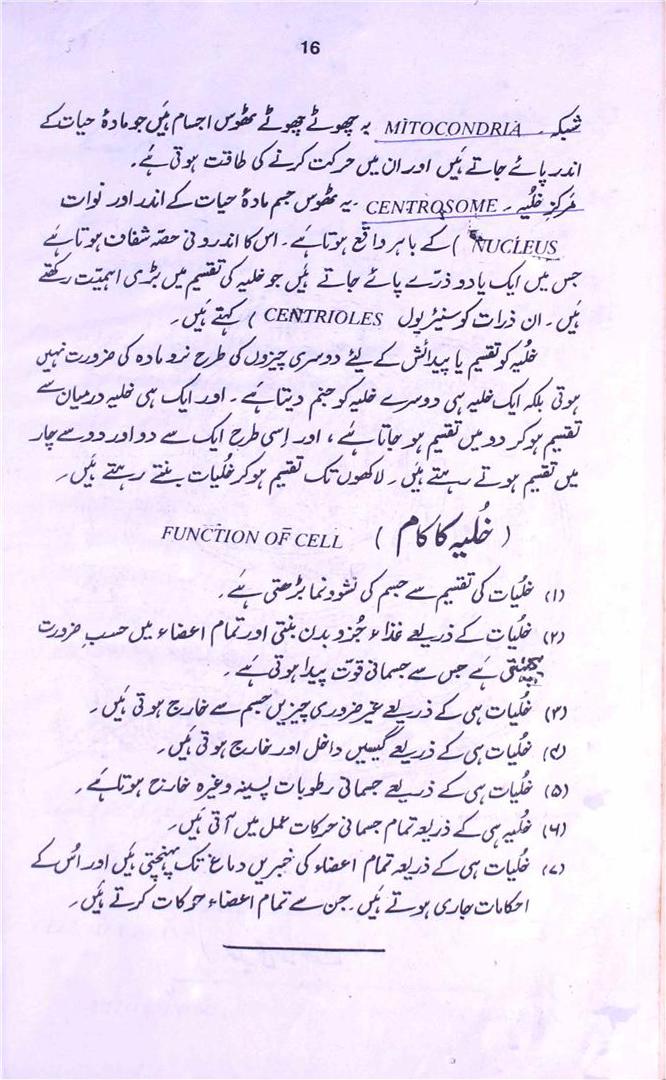 16
شبکہ ۔ MITOCONDRIA یہ چھوٹے چھوٹے ٹھوس اجسام ہیں جو مادۂ حیات کے
اندر پائے جاتے ہیں اور ان میں حرکت کرنے کی طاقت ہوتی ہے۔
مرکز خلیہ ۔ CENTROSOME ۔ یہ ٹھوس جسم مادۂ حیات کے اندر اور نوات
NUCLEUS ) کے باہر واقع ہوتا ہے ۔ اس کا اندرونی حصہ شفاف ہوتا ہے
جس میں ایک یا دو ذرّے پائے جاتے ہیں جو خلیہ کی تقسیم میں بڑی اہمیت رکھتے
ہیں ۔ ان ذرات کو سنیٹریول CENTRIOLES ) کہتے ہیں ۔
خلیہ کو تقسیم یا پیدائش کے لیئے دوسری چیزوں کی طرح نر و مادہ کی ضرورت نہیں
ہوتی بلکہ ایک خلیہ ہی دوسرے خلیہ کو جنم دیتا ہے ۔ اور ایک ہی خلیہ درمیان سے
تقسیم ہو کر دو میں تقسیم ہو جاتا ہے ، اور اِسی طرح ایک سے دو اور دو سے چار
میں تقسیم ہوتے رہتے ہیں ۔ لاکھوں تک تقسیم ہو کر خُلیات بنتے رہتے ہیں ۔
( خُلیہ کا کام ) FUNCTION OF CELL
(۱) خلیات کی تقسیم سے جسم کی نشوونما بڑھتی ہے ۔
(۲) خُلیات کے ذریعے غذاء جُزو بدن بنتی اور تمام اعضاء میں حسب ضرورت
پہنچتی ہے جس سے جسمانی قوت پیدا ہوتی ہے ۔
(۳) خُلیات ہی کے ذریعے غیر ضروری چیزیں جسم سے خارج ہوتی ہیں ۔
(۴) خُلیات ہی کے ذریعے گیسیں داخل اور خارج ہوتی ہیں ۔
(۵) خُلیات ہی کے ذریعے جسمانی رطوبات پسینہ وغیرہ خارج ہوتا ہے ۔
(۶) خُلیہ ہی کے ذریعہ تمام جسمانی حرکات عمل میں آتی ہیں ۔
(۷) خُلیات ہی کے ذریعہ تمام اعضاء کی خبریں دماغ تک پہنچتی ہیں اور اُس کے
احکامات جاری ہوتے ہیں ۔ جن سے تمام اعضاء حرکات کرتے ہیں ۔